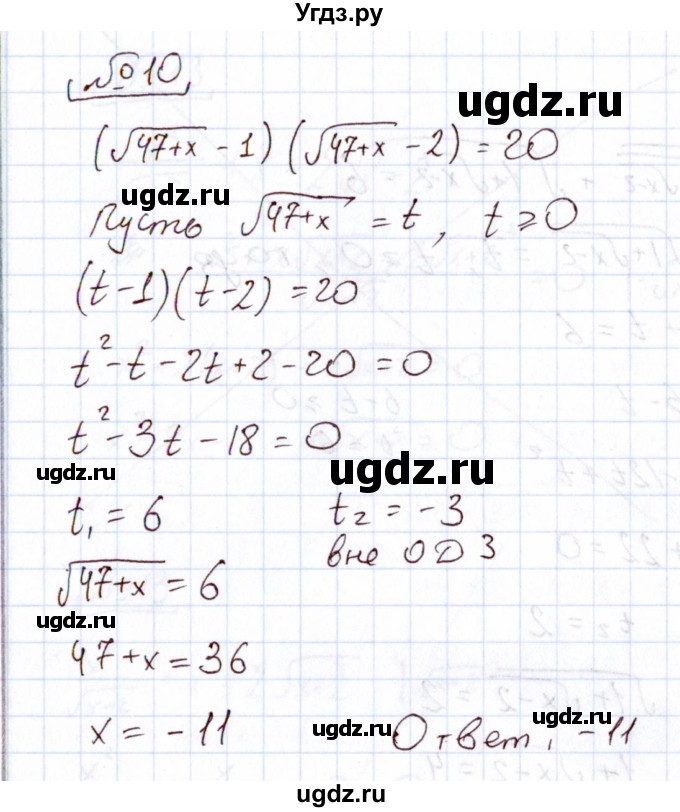 Угдз.ру
№10
ugdz.ru
(√47+x - 1)(√47+x - 2) = 20
ugdz.ru
Пусть √47+x = t, t ≥ 0
(t-1)(t-2) = 20
t² - t - 2t + 2 - 20 = 0
t² - 3t - 18 = 0
ugdz.ru ugdz.ru
t₁ = 6 t₂ = -3
вне ОДЗ
√47+x = 6
ugdz.ru
47+x = 36
x = -11 ugdz.ru Ответ: -11 ugdz.ru